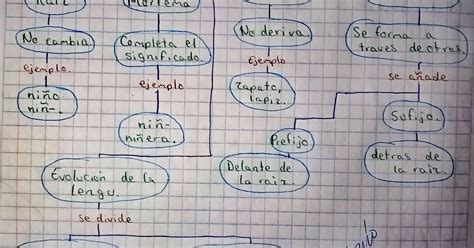 Raíz
No cambia
Ejemplo.
niño
niñ-.
Completa el
significado.
ejemplo
niñ-
niñera.
No deriva.
Ejemplo
Zapato,
lapiz.
Se forma a
traves de otras.
se añade
Prefijo
Delante de
la raiz.
Sufijo.
detras de
la raiz.
Evolución de la
lengu.
se divide